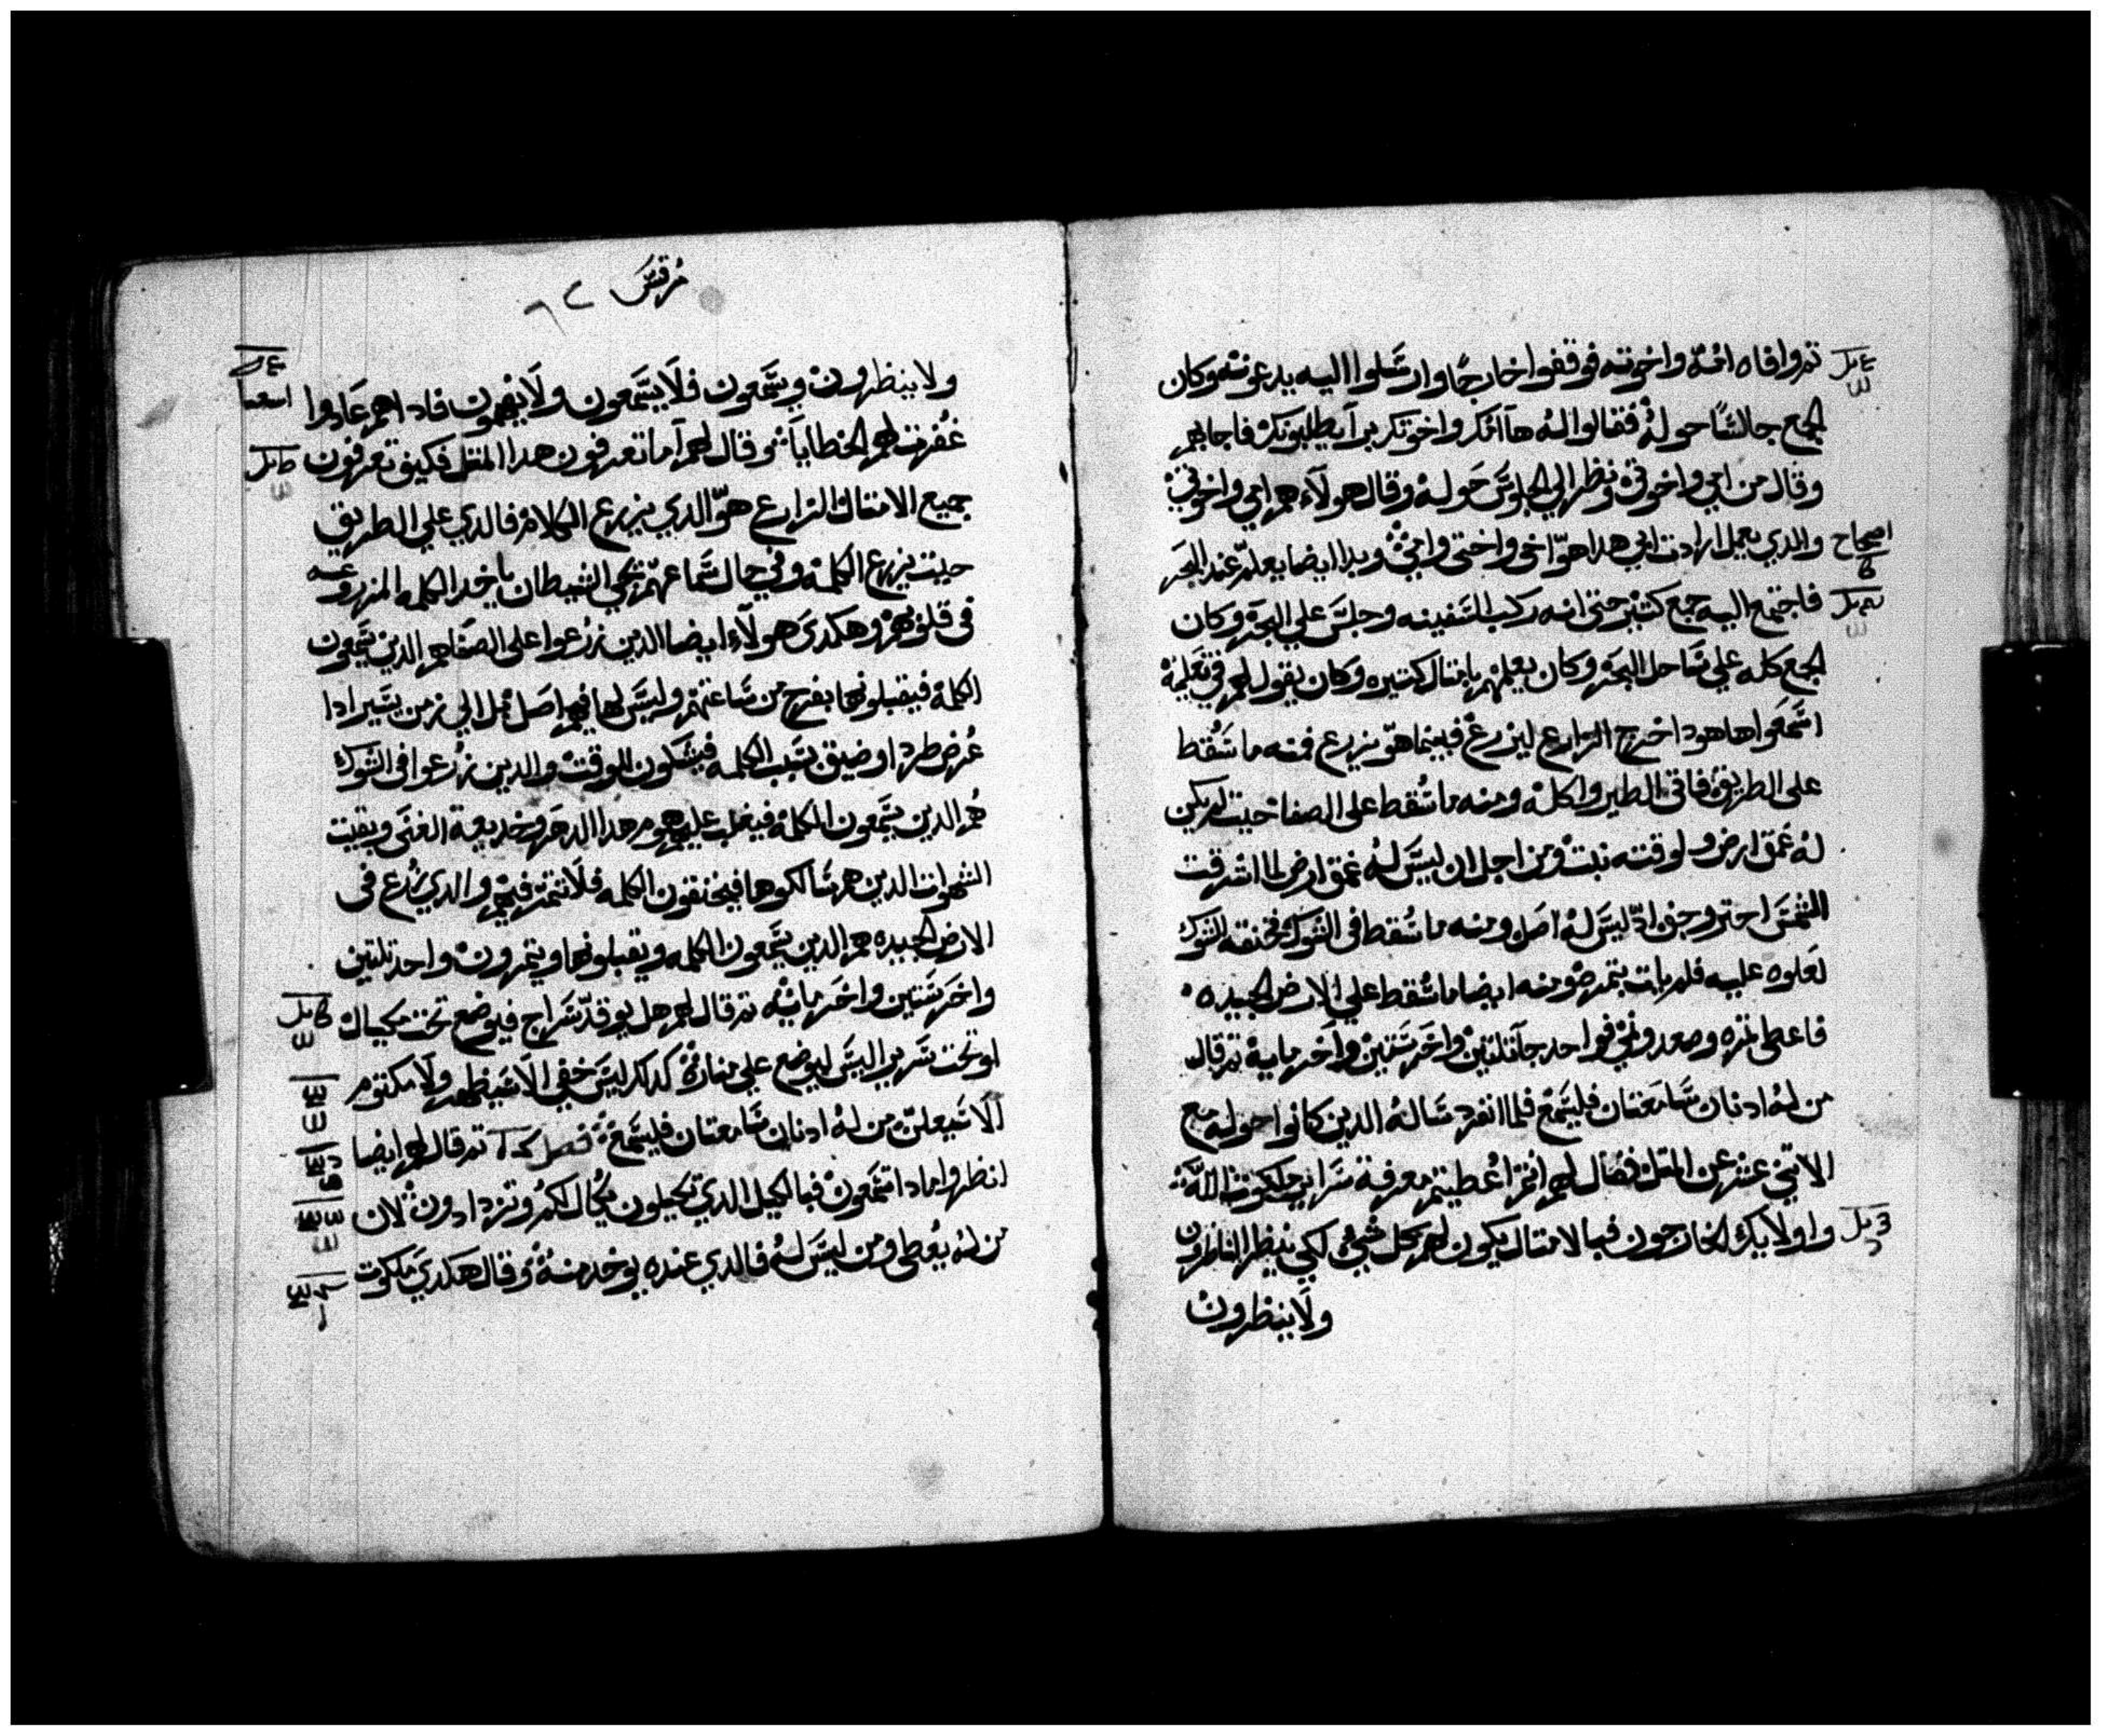 تم وافاه امه واخوته فوقفوا خارجًا وارسَلوا اليه يدعونه وكان
الجمع جالسًا حوله فقالوا له ها امك واخوتك برآ يطلبونك فاجابهم
وقال من امي واخوتي ونظر الي الجلوسَ حَوله وقال هولآء هم امي واخوتي
اصحاح
والدي يعمل ارادت ابي هدا هوّ اخي واختي وامي وبدا ايضا يعلم عند البحر
فاجتمع اليه جمع كتير حتى انه ركب السَفينه وجلسَ علي البحر وكان
الجمع كله علي سَاحل البحر وكان يعلمهم بامتال كتيره وكان يقول لهم في تعَليمه
اسَمعَوا هاهودا خرج الزارع ليزرع فبينما هوّ يزرع فمنه ما سَقط
على الطريق فاتى الطير واكله ومنه ما سُقط على الصفا حيت لم يكن
له عَمق ارض ولوقته نبت ومن اجل ان ليسَ له عمق ارض لما اشرقت
الشمسَ احترق وجف ادّ ليسَ له اصل ومنه ما سُقط فى الشوك فخنقه الشوك
لعَلوه عليه فلم يات بتمره ومنه ايضا ما سُقط علي الارض الجيده
فاعطى تمره وصعد ونمي فواحد جآ بتلتين واخَر سَتين واخَر مايه تم قال
من له ادنان سَامعَتان فليسَمع فلما انفرد سَاله الدين كانوا حوله مع
الاتني عشر عن المتل فقال لهم انتم اعُطيتم معرفة سَراير ملكوت الله
واولايك الخارجون فبالامتال يكون لهم كل شي لكي ينظر الناظرون
ولاَ ينظرون
مُرقسَ ٦٢
ولا ينظرون ويسَمعَون فلاَ يسَمعون ولاَ يفهمون فاد اهم عَادوا
غُفرت لهم الخطاياَ تم وقال لهم آما تعرفون هدا المتل فكيف تعرفون
جميع الامتال الزارع هوّ الدي يزرع الكلام فالدي علي الطريق
حيت يزرع الكلمه وفي حال سَماعهم يجي الشيطان ياخد الكلمه المزروعه
فى قلوبهم وهكدى هولآء ايضا الدين زرُعوا على الصفا هم الدين يسَمعون
الكلمه فيقبلونها بفرح من سَاعتهم وليسَ لها فيهم اصَل بل الي زمن يسَير ادا
عُرض طرد او ضيق بسَبب الكلمه فيشكون للوقت والدين زرُعوا فى الشوك
هُم الدين يسَمعون الكلمه فيغلب عليهم هموم هدا الدهر وخديعة الغنَى وبقيت
الشهوات الدين هم سَالكوها فيخنقون الكلمه فلاَ تتمر فيهم والدي زرُع فى
الارض الجيده هم الدين يسَمعون الكلمه ويقبلونها ويتمرون واحد تلتين
واخَر سَتين واخَر مايه تم قال لهم هل يوقد سَراج فيوضع تحت مكيال
او تحت سَرير اليسَ ليوضع علي مناره كدلك ليسَ خفي الا سَيظهر ولاَ مكتوم
الا سَيعلن من له ادنان سَامعتان فليسَمع فصل تم قال لهم ايضا
انظروا مادا تسَمعَون فبالكيل الدي تكيلون يُكال لكمُ وتزدادون لان
من له يُعطى ومن ليسَ له فالدي عنده يوخد منه وقال هكدي ملكوت